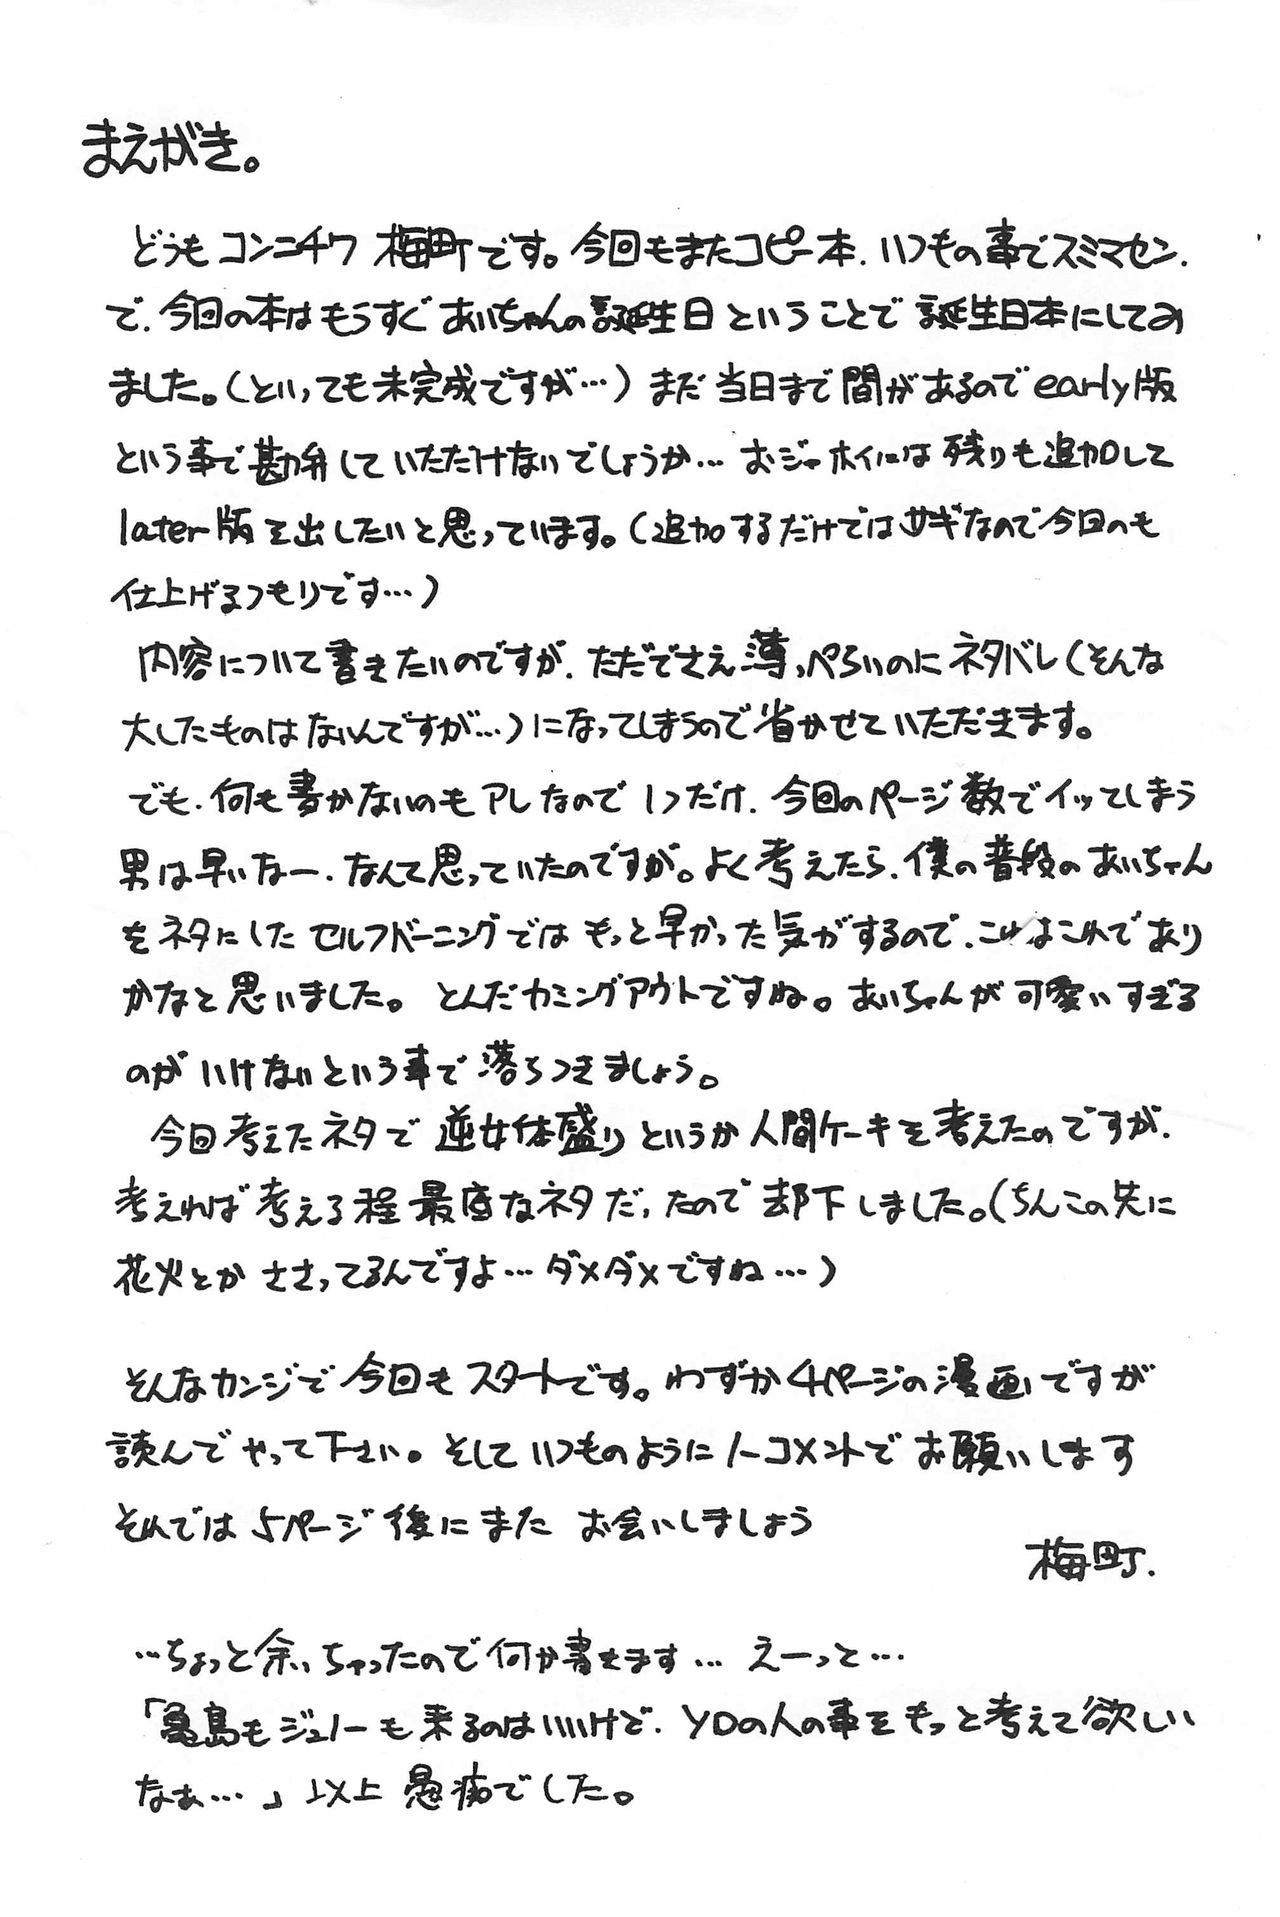 まえがき。
どうもコンニチワ 梅町です。今回もまたコピー本、いつもの事でスミマセン、
で、今回の本はもうすぐあいちゃんの誕生日ということで誕生日本にしてみ
ました。（といっても未完成ですが…）まだ当日まで間があるのでearly版
という事で勘弁していただけないでしょうか… おジャホイには残りも追加して
later版を出したいと思っています。（追加するだけではサギなので今回のも
仕上げるつもりです…）
内容について書きたいのですが、ただでさえ薄っぺらいのにネタバレ（そんな
大したものはないんですが…）になってしまうので省かせていただきます。
でも、何も書かないのもアレなので1つだけ、今回のページ数でイッてしまう
男は早いなー、なんて思っていたのですが。よく考えたら、僕の普段のあいちゃん
をネタにしたセルフバーニングではもっと早かった気がするので、これはこれであり
かなと思いました。とんだカミングアウトですね。あいちゃんが可愛いすぎる
のがいけないという事で落ちつきましょう。
今回考えたネタで逆女体盛りというか人間ケーキを考えたのですが、
考えれば考える程最底なネタだったので却下しました。（ちんこの先に
花火とかささってるんですよ…ダメダメですね…）
そんなカンジで今回もスタートです。わずか4ページの漫画ですが
読んでやって下さい。そしていつものようにノーコメントでお願いします
それでは5ページ後にまた お会いしましょう
梅町.
…ちょっと余っちゃったので何か書きます… えーっと…
「亀島もジュノーも来るのはいいけど、YDの人の事をもっと考えて欲しい
なぁ…」以上 愚痴でした。